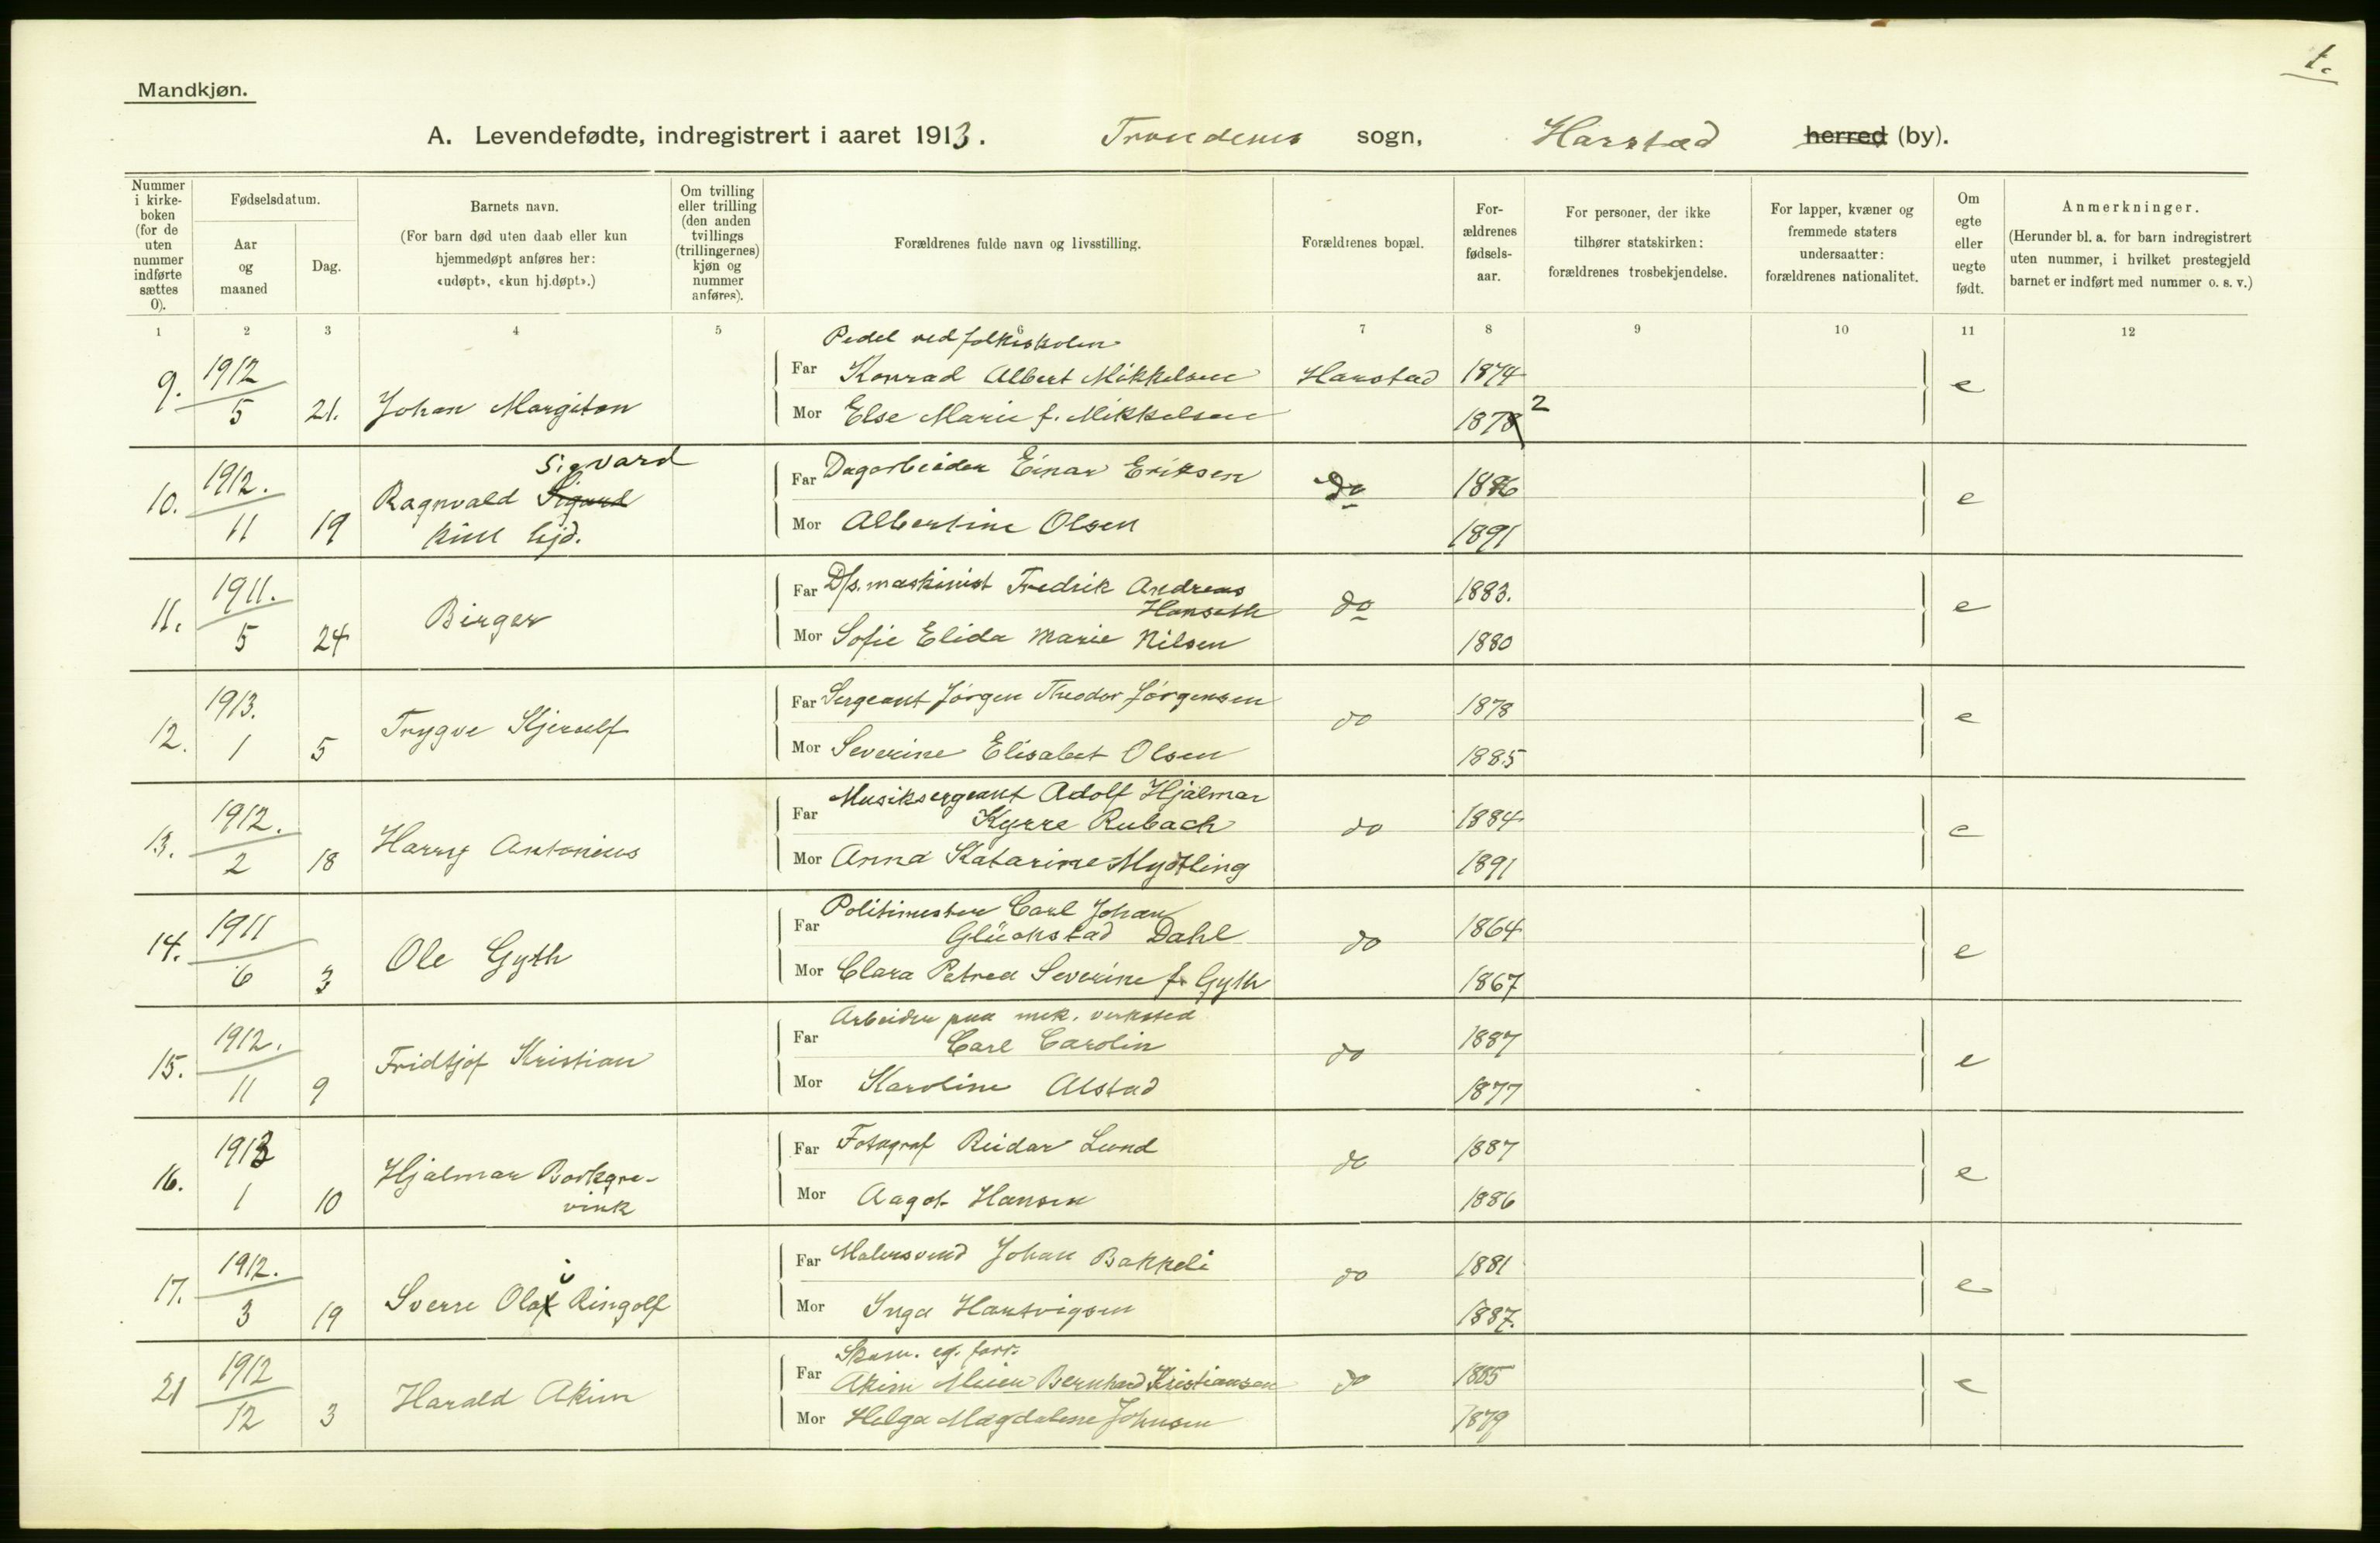 t.
Mandkjøn.
A. Levendefødte, indregistrert i aaret 1913. Trondenes sogn, Harstad herred (by).
Nummer i kirke-boken (for de uten nummer indførte sættes 0).
Fødselsdatum.
Aar og maaned
Dag.
Barnets navn.
(For barn død uten daab eller kun hjemmedøpt anføres her: «udøpt», «kun hj.døpt».)
Om tvilling eller trilling (den anden tvillings (trillingernes) kjøn og nummer anføres).
Forældrenes fulde navn og livsstilling.
Forældrenes bopæl.
For-ældrenes fødsels-aar.
For personer, der ikke tilhører statskirken: forældrenes trosbekjendelse.
For lapper, kvæner og fremmede staters undersaatter: forældrenes nationalitet.
Om egte eller uegte født.
Anmerkninger.
(Herunder bl. a. for barn indregistrert uten nummer, i hvilket prestegjeld barnet er indført med nummer o. s. v.)
1 2 3 4 5 6 7 8 9 10 11 12
Pedel ved folkeskolen
9. 1912 5 21. Johan Margiton Far Konrad Albert Mikkelsen Harstad 1874 e
Mor Else Marie f. Mikkelsen 1878 2
Sigvard
10. 1912. 11 19 Ragnvald Sigurd Far Dagarbeider Einar Eriksen do 1886 e
kun hjd. Mor Albertine Olsen 1891
11. 1911. 5 24 Birger Far D/s. maskinist Fredrik Andreas do 1883. e
Hanseth
Mor Sofie Elida Marie Nilsen 1880
12. 1913. 1 5 Trygve Kjerulf Far Sergeant Jørgen Theodor Jørgensen do 1878 e
Mor Severine Elisabet Olsen 1885
13. 1912. 2 18 Harry Antonius Far Musiksergeant Adolf Hjalmar do 1884 e
Kyrre Rubach
Mor Anna Katarine Mydtling 1891
14. 1911 6 3 Ole Gyth Far Politimester Carl Johan do 1864 e
Glückstad Dahl
Mor Clara Petrea Severine f. Gyth 1867
Arbeider paa mek. verksted
15. 1912. 11 9 Fridtjof Kristian Far Carl Carolin do 1887 e
Mor Karoline Alstad 1877
16. 1913 1 10 Hjalmar Borkgre- Far Fotograf Reidar Lund do 1887 e
vink Mor Aagot Hansen 1886
17. 1912. 3 19 Sverre Olaf Ringolf Far Malersvend Johan Bakkeli do 1881 e
Mor Inga Hartvigsen 1887.
21 1912 12 3 Harald Akim Far Akim Bernhard Kristiansen do 1885 e
Mor Helga Magdalene Johnsen 1879